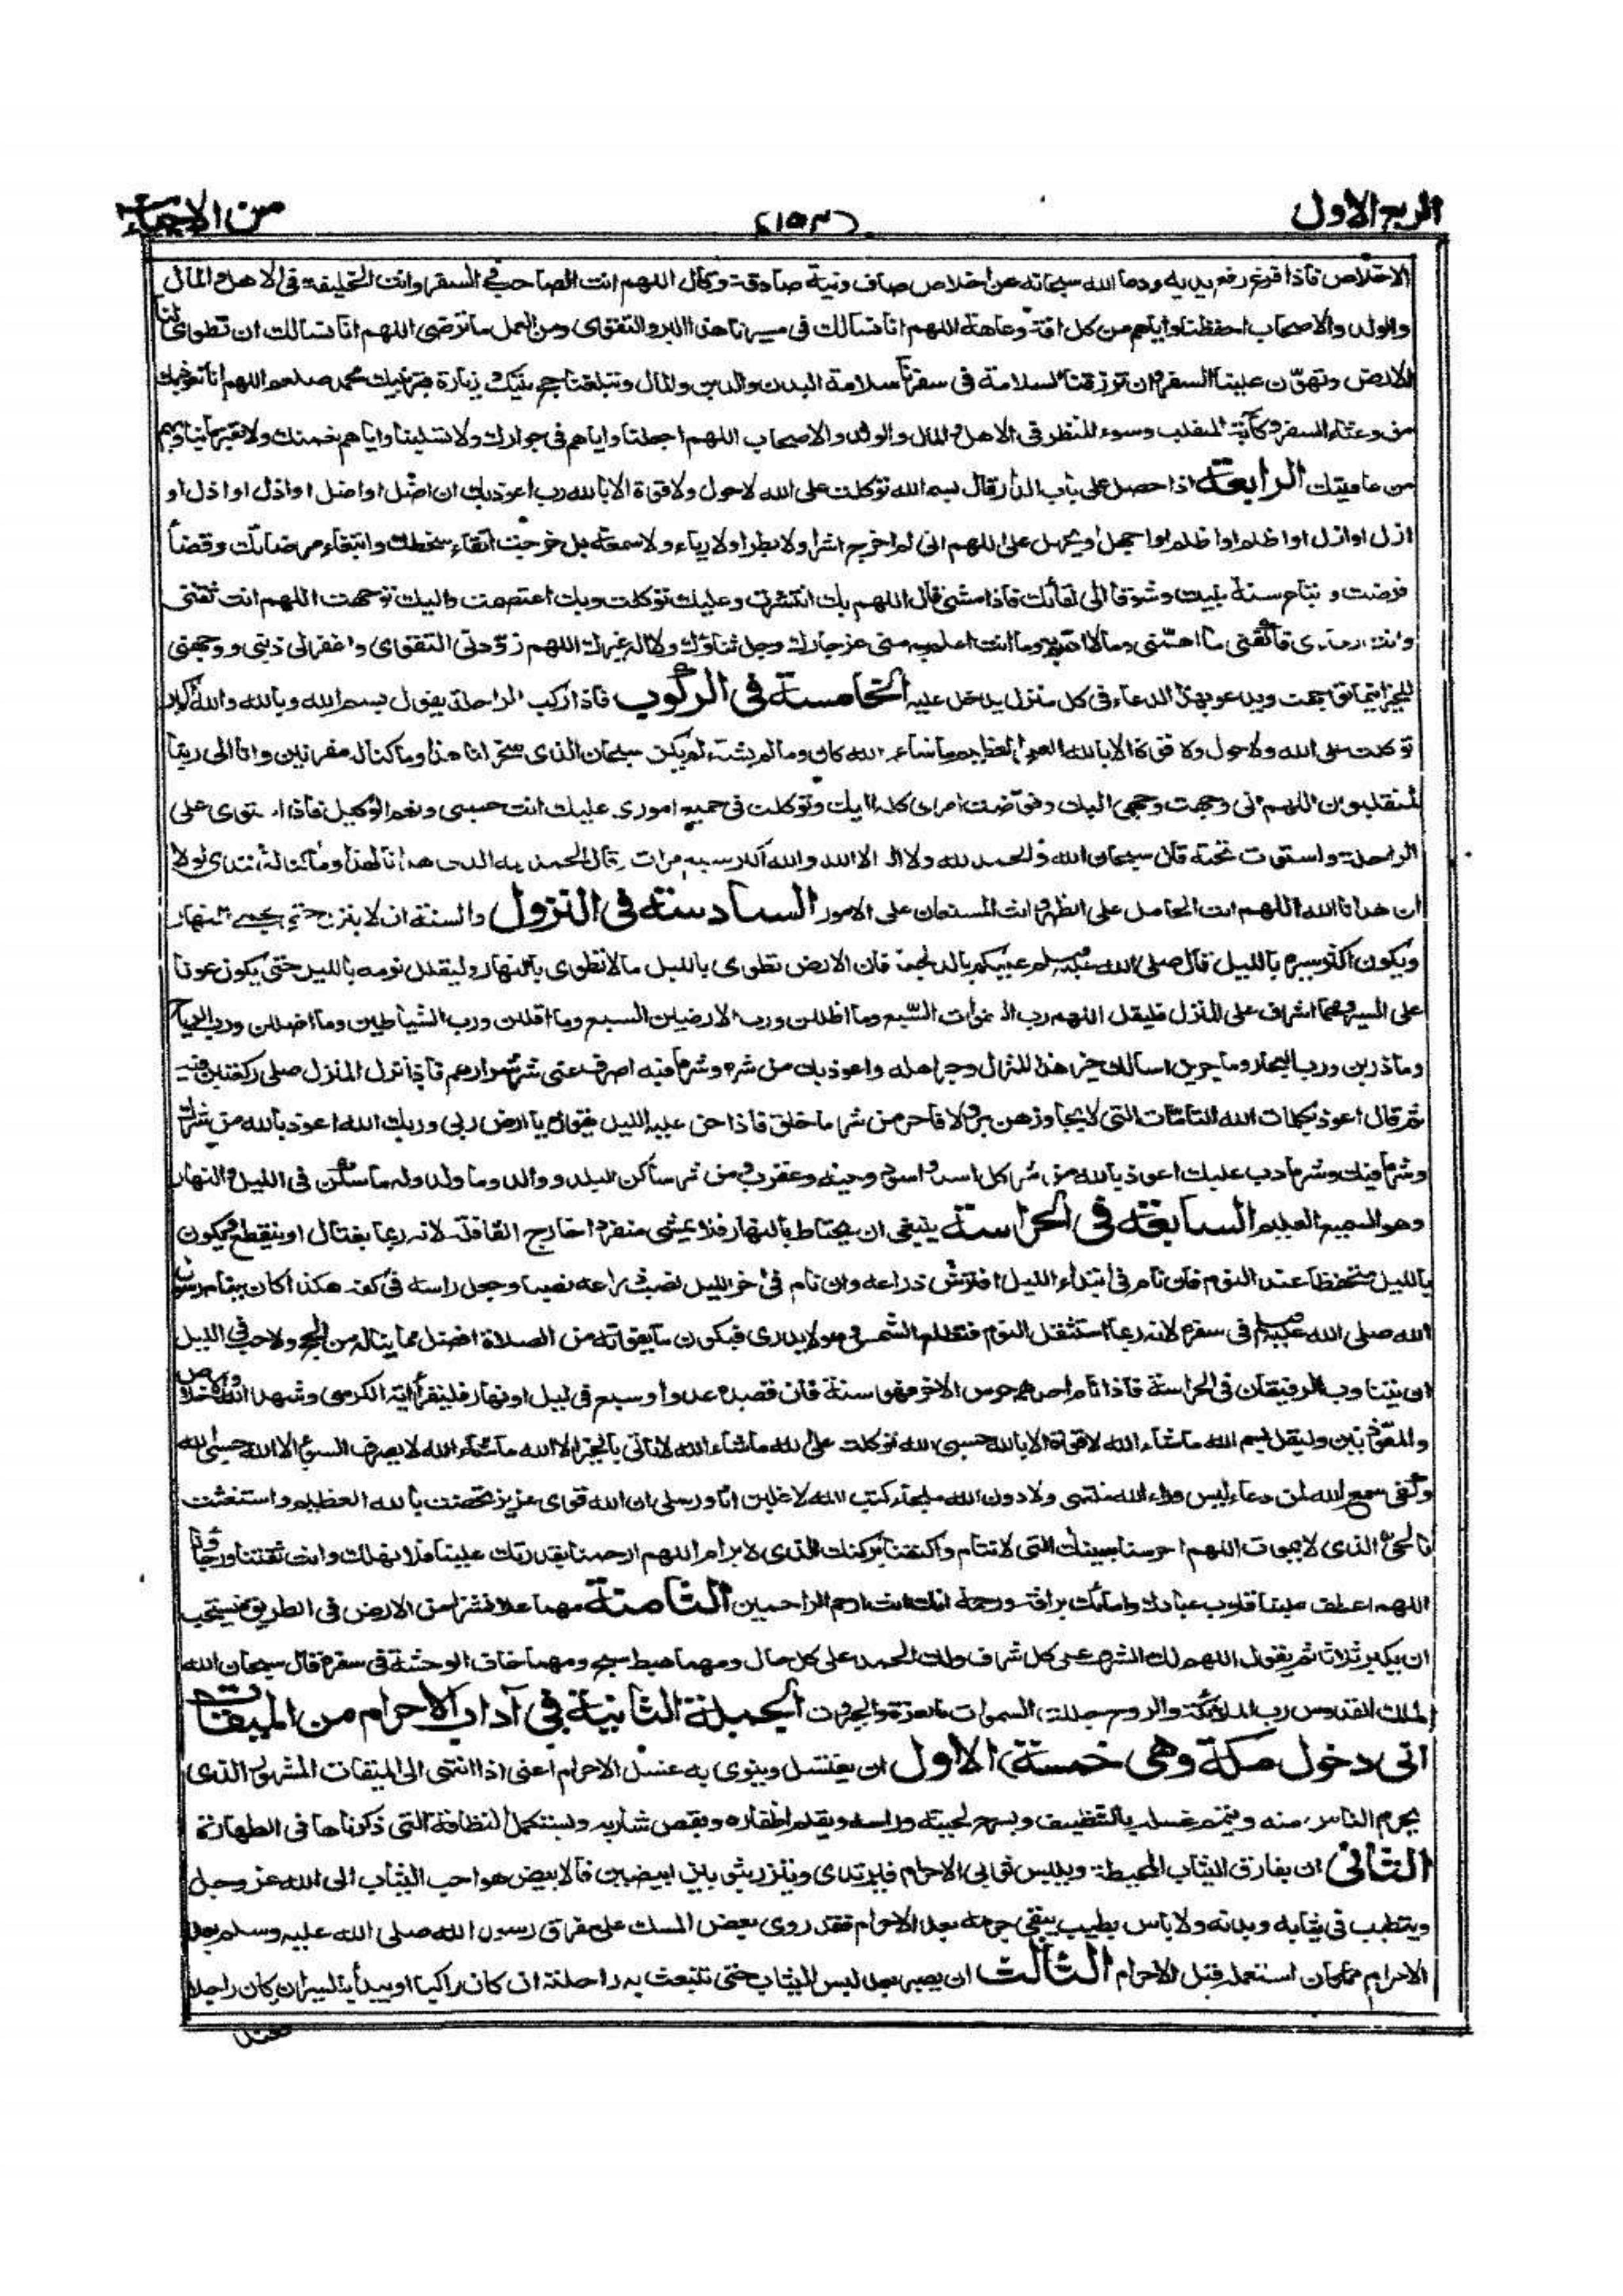 الربع الاول (١٥٣) من الاحياء
الاخلاص فاذا فرغ رفع يديه ودعا الله سبحانه عن اخلاص صاف ونية صادقة وقال اللهم انت الصاحب في السفر وانت الخليفة في الاهل والمال
والولد والاصحاب احفظنا واياهم من كل افة وعاهة اللهم انا نسالك في مسيرنا هذا البر والتقوى ومن العمل ما ترضى اللهم انا نسالك ان تطوى لنا
الارض وتهوّن علينا السفر وان ترزقنا السلامة في سفرنا سلامة البدن والدين والمال وتبلغنا حج بيتك وزيارة قبر نبيك محمد صلعم اللهم انا نعوذ بك
من وعثاء السفر وكآبة المنقلب وسوء المنظر في الاهل والمال والولد والاصحاب اللهم اجعلنا واياهم في جوارك ولا تسلبنا واياهم نعمتك ولا تغير ما بنا وبهم
من عافيتك الرابعة اذا حصل على باب الدار قال بسم الله توكلت على الله لاحول ولا قوة الا بالله رب اعوذ بك ان اضل او اضل او اذل او اذل او
ازل او ازل او اظلم او اظلم او اجهل او يجهل على اللهم اني لم اخرج اشرا ولا بطرا ولا رياء ولا سمعة بل خرجت اتقاء سخطك وابتغاء مرضاتك وقضاء
فرضك و اتباع سنة نبيك وشوقا الى لقائك فاذا مشى قال اللهم بك انتشرت وعليك توكلت وبك اعتصمت واليك توجهت اللهم انت ثقتى
وانت رجاءى فاكفنى ما اهمنى وما لا اهتم به وما انت اعلم به منى عز جارك وجل ثناؤك ولا اله غيرك اللهم زودنى التقوى واغفر لى ذنبى ووجهنى
للخير اينما توجهت ويدعو بهذا الدعاء في كل منزل يدخل عليه الخامسة في الركوب فاذا ركب الراحلة يقول بسم الله وبالله والله اكبر
توكلت على الله ولا حول ولا قوة الا بالله العلى العظيم ما شاء الله كان وما لم يشاء لم يكن سبحان الذى سخر لنا هذا وما كنا له مقرنين وانا الى ربنا
لمنقلبون اللهم انى وجهت وجهى اليك وفوضت امرى كله اليك وتوكلت في جميع امورى عليك انت حسبى ونعم الوكيل فاذا استوى على
الراحلة واستوت تحته قال سبحان الله والحمد لله ولا اله الا الله والله اكبر سبع مرات وقال الحمد لله الذى هدانا لهذا وما كنا لنهتدى لولا
ان هدانا الله اللهم انت الحامل على الظهر وانت المستعان على الامور السادسة في النزول والسنة ان لا ينزل حتى يحمى النهار
ويكون اكثر سيره بالليل قال صلى الله عليه وسلم عليكم بالدلجة فان الارض تطوى بالليل مالا تطوى بالنهار وليقلل نومه بالليل حتى يكون عونا
على السير ومهما اشرف على المنزل فليقل اللهم رب السموات السبع وما اظللن ورب الارضين السبع وما اقللن ورب الشياطين وما اضللن ورب الرياح
وما ذرين ورب البحار وما جرين اسالك خير هذا المنزل وخير اهله واعوذ بك من شره وشر ما فيه اصرف عنى شر شرارهم فاذا نزل المنزل صلى ركعتين فيه
ثم قال اعوذ بكلمات الله التامات التى لا يجاوزهن بر ولا فاجر من شر ما خلق فاذا جن عليه الليل فيقول يا ارض ربى وربك الله اعوذ بالله من شرك
وشر ما فيك وشر ما دب عليك اعوذ بالله من شر كل اسد واسود وحية وعقرب ومن شر ساكن البلد ووالد وما ولد وله ما سكن في الليل والنهار
وهو السميع العليم السابعة في الحراسة ينبغى ان يحتاط بالنهار فلا يمشى منفردا خارج القافلة لانه ربما يغتال او ينقطع ويكون
بالليل متحفظا عند النوم فان نام في ابتداء الليل افترش ذراعه وان نام في اخر الليل نصب ذراعه نصبا وجعل راسه في كفه هكذا كان ينام رسول
الله صلى الله عليه وسلم في سفره لانه ربما استثقل النوم فتطلع الشمس وهو لا يدرى فيكون ما يفوته من الصلاة افضل مما يناله من الحج والاحب في الليل
ان يتناوب الرفيقان في الحراسة فاذا نام احدهما حرس الاخر فهو سنة فان قصده عدو او سبع في ليل او نهار فليقرأ اية الكرسى وشهد الله والاخلاص
والمعوذتين وليقل بسم الله ما شاء الله لا قوة الا بالله حسبى الله توكلت على الله ما شاء الله لا ياتى بالخير الا الله ما شاء الله لا يصرف السوء الا الله حسبى الله
وكفى سمع الله لمن دعا ليس وراء الله منتهى ولا دون الله ملجاء كتب الله لاغلبن انا ورسلى ان الله قوى عزيز تحصنت بالله العظيم واستغثت
بالحى الذى لا يموت اللهم احرسنا بعينك التى لا تنام واكنفنا بركنك الذى لا يرام اللهم ارحمنا بقدرتك علينا فلا نهلك وانت ثقتنا ورجاؤنا
اللهم اعطف علينا قلوب عبادك وامائك برافة ورحمة انك انت ارحم الراحمين الثامنة مهما علا نشزا من الارض في الطريق فيستحب
ان يكبر ثلاثا ثم يقول اللهم لك الشرف على كل شرف ولك الحمد على كل حال ومهما هبط سبح ومهما خاف الوحشة في سفره قال سبحان الله
الملك القدوس رب الملائكة والروح جللت السموات بالعزة والجبروت الجملة الثانية في آداب الاحرام من الميقات
الى دخول مكة وهى خمسة الاول ان يغتسل وينوى به غسل الاحرام اعنى اذا انتهى الى الميقات المشهور الذى
يحرم الناس منه ويتمم غسله بالتنظيف ويسرح لحيته وراسه ويقلم اظفاره ويقص شاربه ويستكمل النظافة التى ذكرناها في الطهارة
الثانى ان يفارق الثياب المخيطة ويلبس ثوبى الاحرام فيرتدى ويتزر بثوبين ابيضين فالابيض هو احب الثياب الى الله عز وجل
ويتطيب في ثيابه وبدنه ولا باس بطيب يبقى جرمه بعد الاحرام فقد روى بعض المسك على مفرق رسول الله صلى الله عليه وسلم بعد
الاحرام مما كان استعمله قبل الاحرام الثالث ان يصبر بعد لبس الثياب حتى تنبعث به راحلته ان كان راكبا او يبدأ بالسير ان كان راجلا